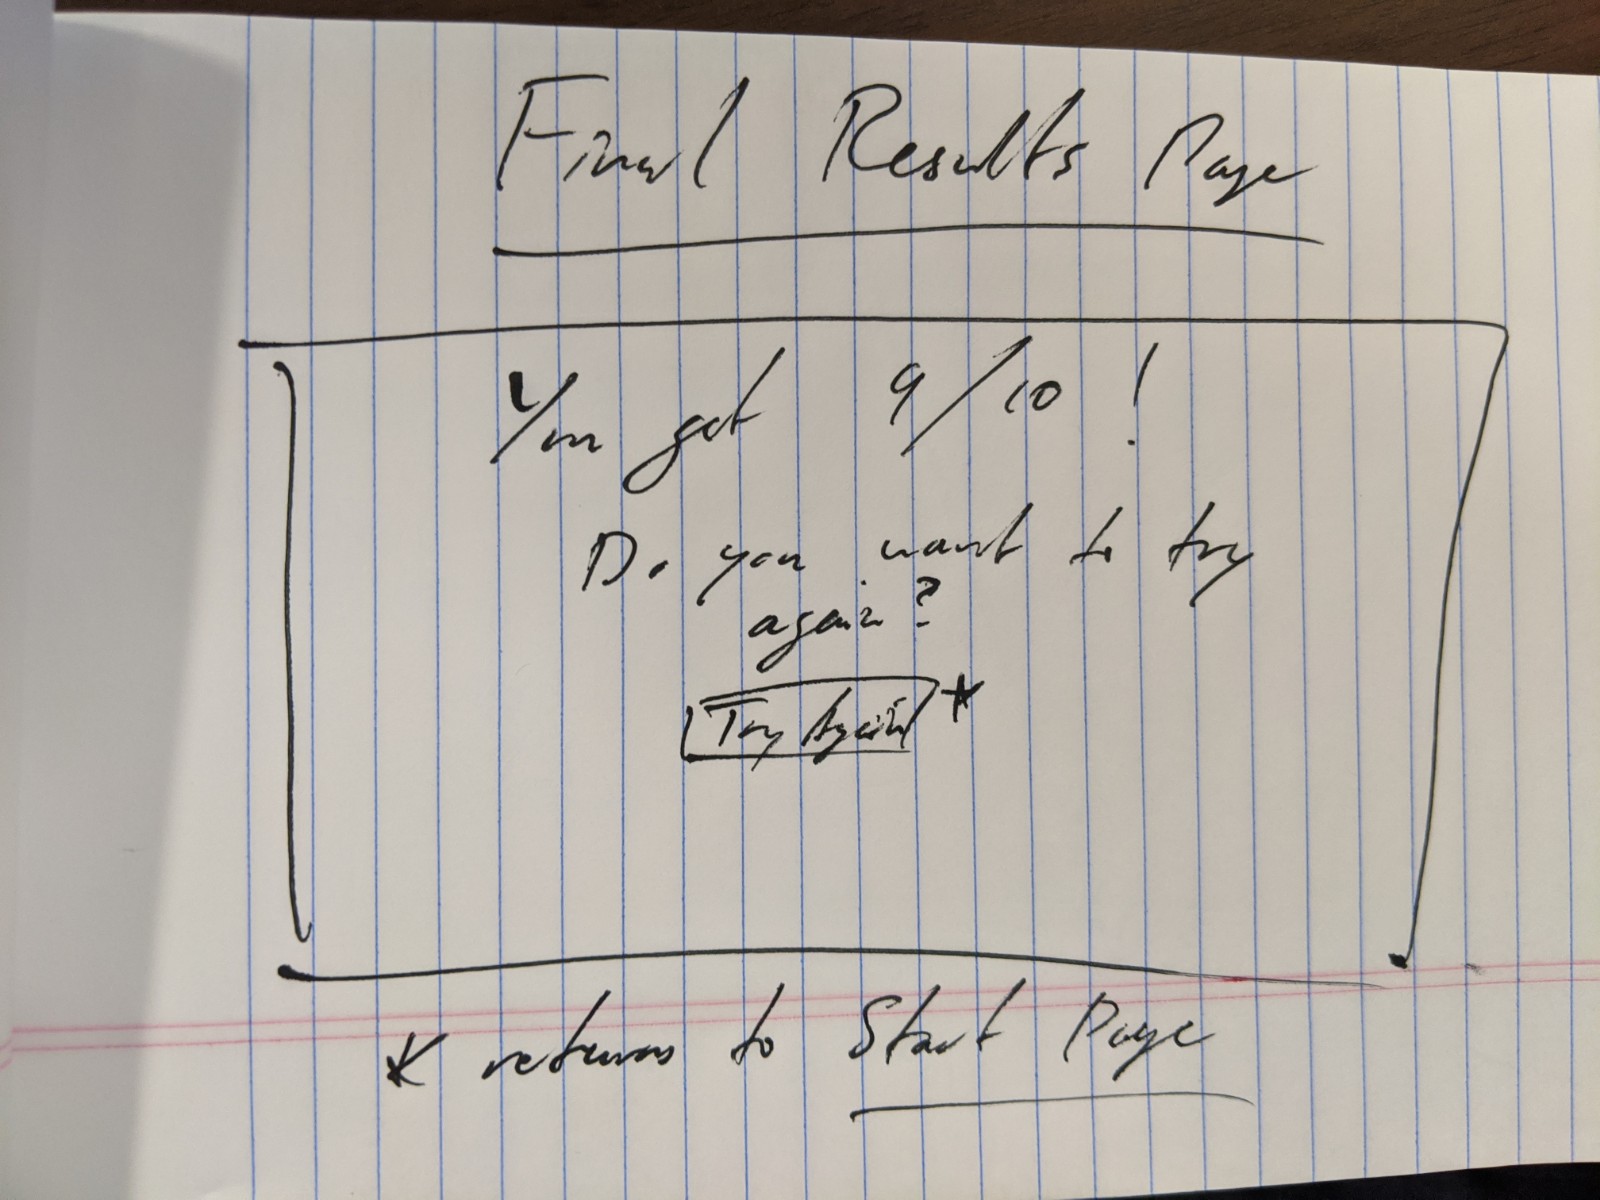 Final Results Page
You got 9/10!
Do you want to try
again?
Try Again *
* returns to Start Page